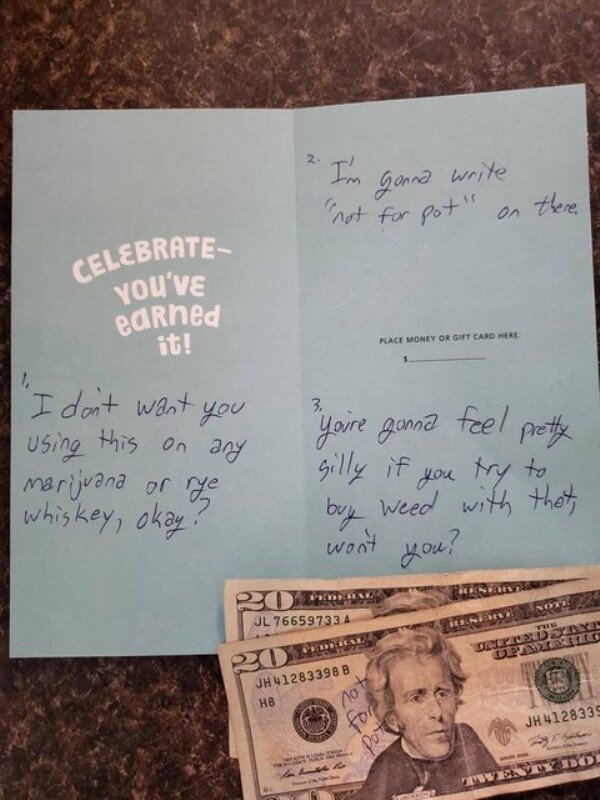 CELEBRATE–
YOU'VE
eaRned
it!
1. I don't want you
using this on any
marijuana or rye
whiskey, okay?
2. I'm gonna write
"not for pot" on there
PLACE MONEY OR GIFT CARD HERE.
$
3. You're gonna feel pretty
silly if you try to
buy weed with that,
won't you?
20 FEDERAL RESERVE
JL 76659733 A
20 FEDERAL RESERVE NOTE
THE
UNITED STA
OF AMERICA
JH 41283398 B
H8
not
for
pot
JH 4128339
TWENTY DO